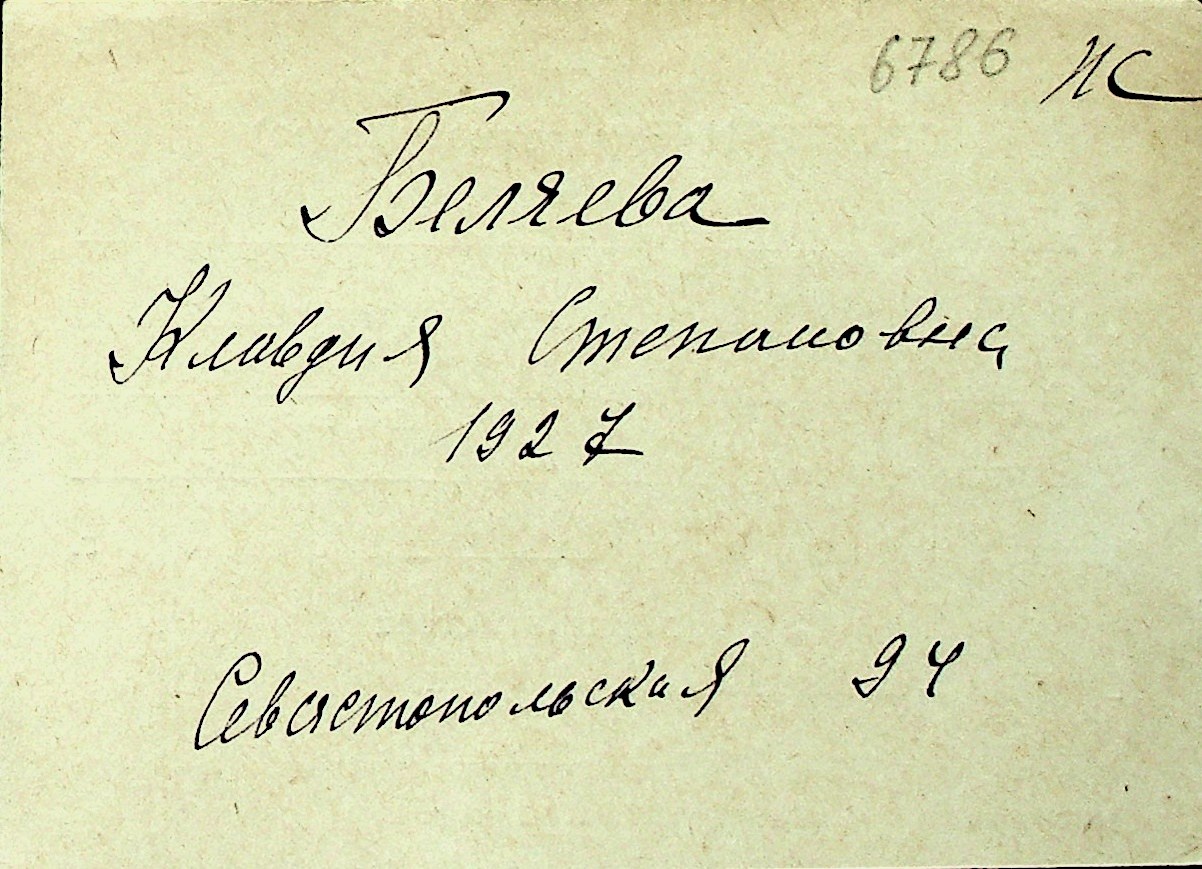 6786 ИС
Беляева
Клавдия Степановна
1927
Севастопольская 94